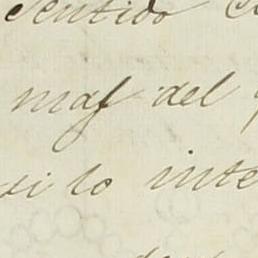 sentido
mas del
si lo inte